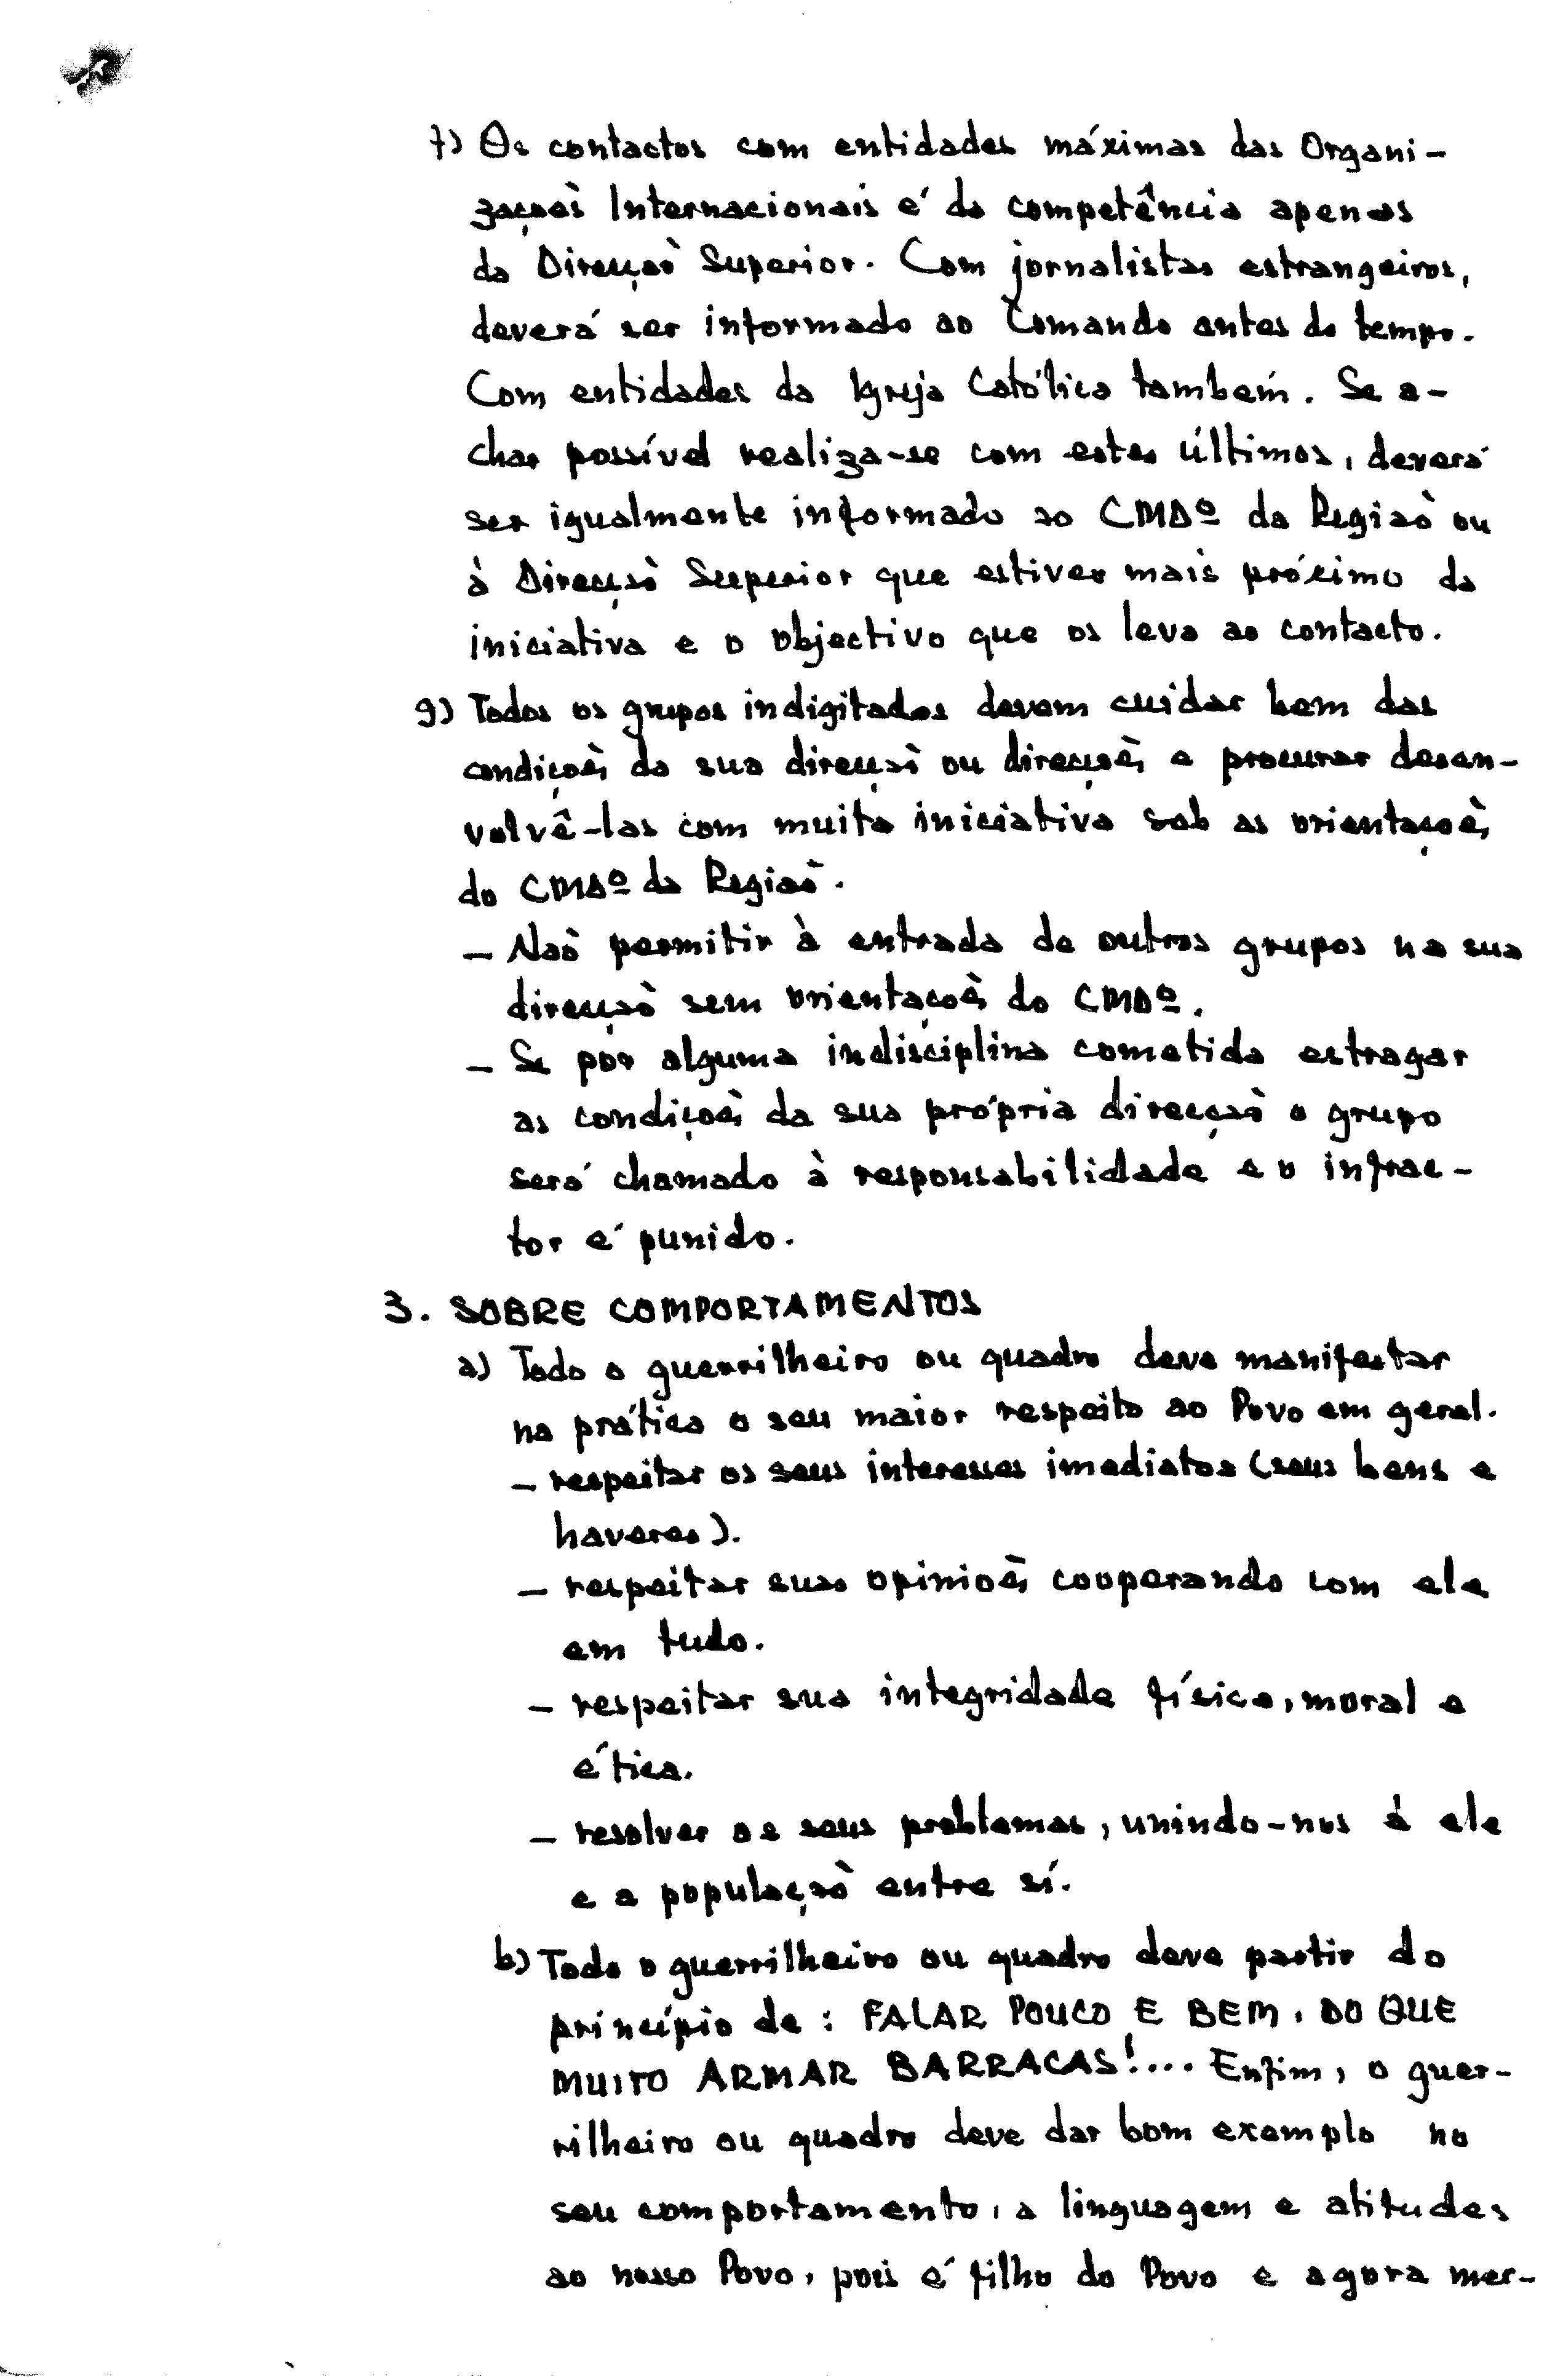 f) Os contactos com entidades máximas das Organi-
zações Internacionais é da competência apenas
da Direcção Superior. Com jornalistas estrangeiros,
deverá ser informado ao Comando antes do tempo.
Com entidades da Igreja Católica também. Se a-
char possível realiza-se com estes últimos, deverá
ser igualmente informado ao CMDº da Região ou
à Direcção Superior que estiver mais próximo da
iniciativa e o objectivo que os leva ao contacto.
g) Todos os grupos indigitados devem cuidar bem das
condições da sua direcção ou direcções e procurar desen-
volvê-las com muita iniciativa sob as orientações
do CMDº da Região.
- Não permitir à entrada de outros grupos na sua
direcção sem orientações do CMDº.
- Se por alguma indisciplina cometida estragar
as condições da sua própria direcção o grupo
será chamado à responsabilidade e o infrac-
tor é punido.
3. SOBRE COMPORTAMENTOS
a) Todo o guerrilheiro ou quadro deve manifestar
na prática o seu maior respeito ao Povo em geral.
- respeitar os seus interesses imediatos (seus bens e
haveres).
- respeitar suas opiniões cooperando com ele
em tudo.
- respeitar sua integridade física, moral e
ética.
- resolver os seus problemas, unindo-nos à ele
e a população entre sí.
b) Todo o guerrilheiro ou quadro deve partir do
princípio de: FALAR POUCO E BEM, DO QUE
MUITO ARMAR BARRACAS!... Enfim, o guer-
rilheiro ou quadro deve dar bom exemplo no
seu comportamento, a linguagem e atitudes
ao nosso Povo, pois é filho do Povo e agora mer-